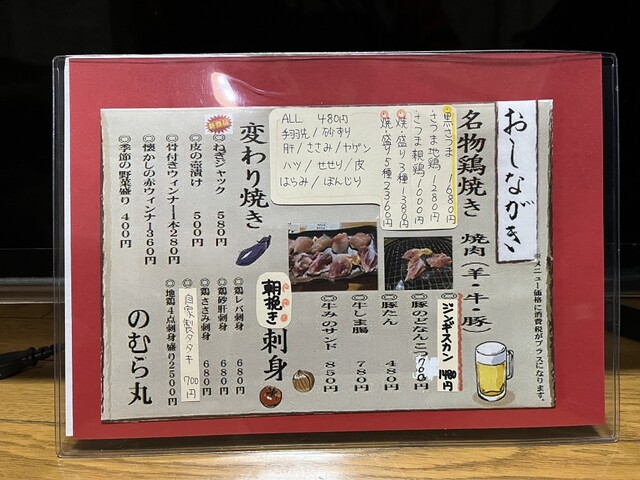 おしながき
※メニュー価格に消費税がプラスになります。
名物鶏焼き
黒さつま 1680円
さつま地鶏 1280円
さつま親鶏 1000円
焼・盛り3種 1380円
焼・盛り5種 2360円
ALL 480円
手羽先/砂ずり
肝/ささみ/ヤゲン
ハツ/せせり/皮
はらみ/ぼんじり
焼肉 羊・牛・豚
ジンギスカン 1480円
豚のどなんこつ 700円
豚たん 480円
牛しま腸 780円
牛みのサンド 850円
変わり焼き
◎ねぎシャック 580円
◎皮の壺漬け 500円
◎骨付きウィンナー1本280円
◎懐かしの赤ウィンナー360円
◎季節の野菜盛り 400円
朝挽き刺身
◎鶏レバ刺身 680円
◎鶏砂肝刺身 680円
◎鶏ささみ刺身 680円
自家製タタキ 700円
◎地鶏4点刺身盛り2500円
のむら丸